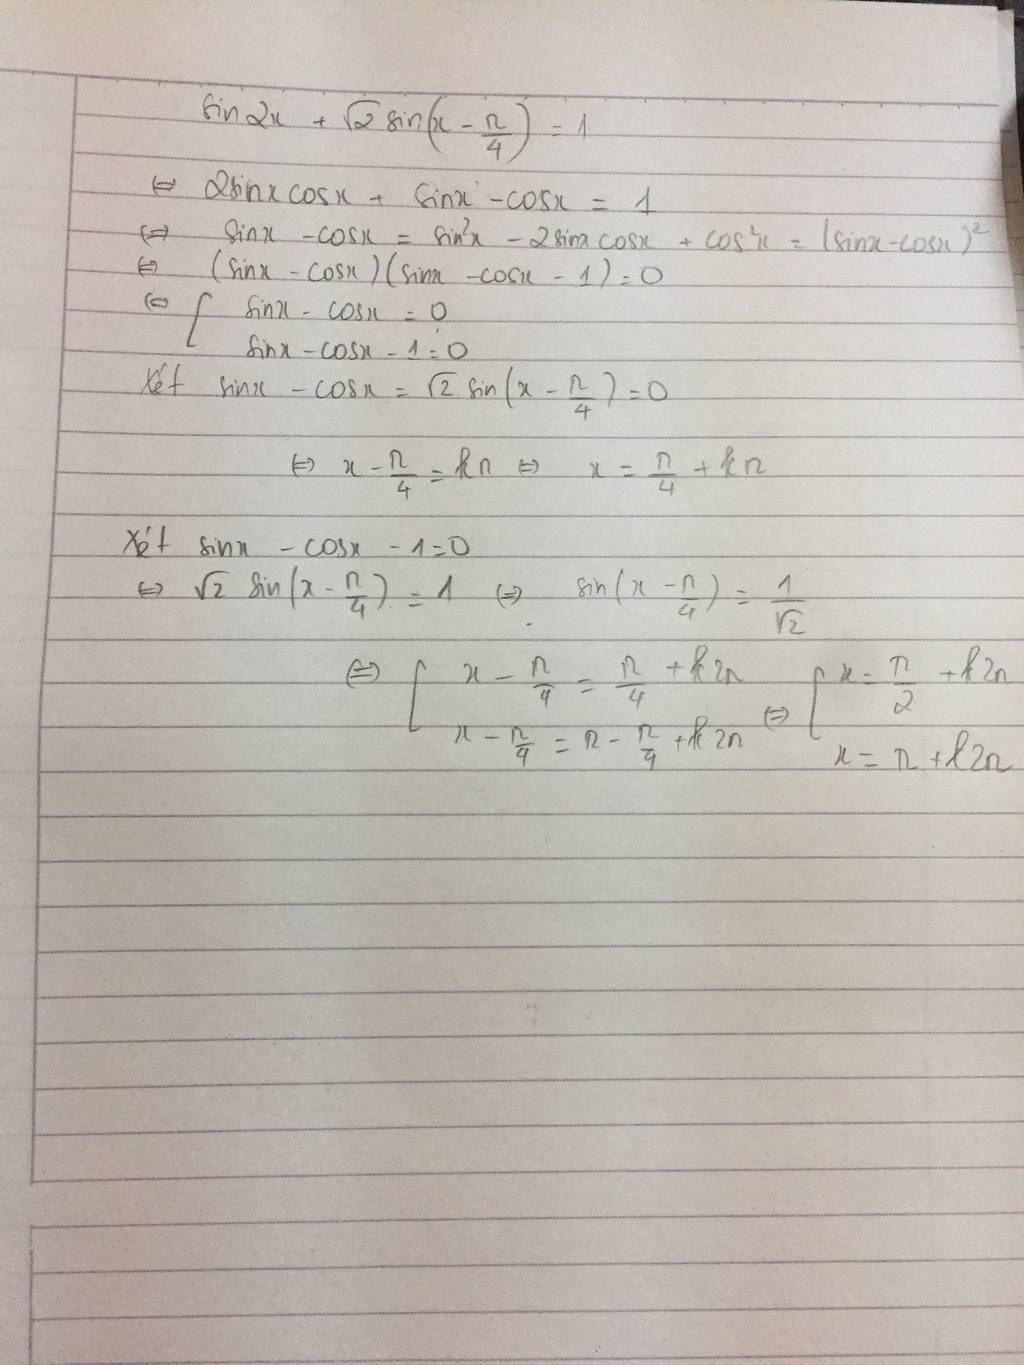 sin2x + √2 sin(x - π/4) = 1
⇔ 2sinxcosx + sinx - cosx = 1
⇔ sinx - cosx = sin²x - 2sinxcosx + cos²x = (sinx - cosx)²
⇔ (sinx - cosx)(sinx - cosx - 1) = 0
⇔ [ sinx - cosx = 0
sinx - cosx - 1 = 0
Xét sinx - cosx = √2 sin(x - π/4) = 0
⇔ x - π/4 = kπ ⇔ x = π/4 + kπ
Xét sinx - cosx - 1 = 0
⇔ √2 sin(x - π/4) = 1 ⇔ sin(x - π/4) = 1/√2
⇔ [ x - π/4 = π/4 + k2π ⇔ [ x = π/2 + k2π
x - π/4 = π - π/4 + k2π x = π + k2π